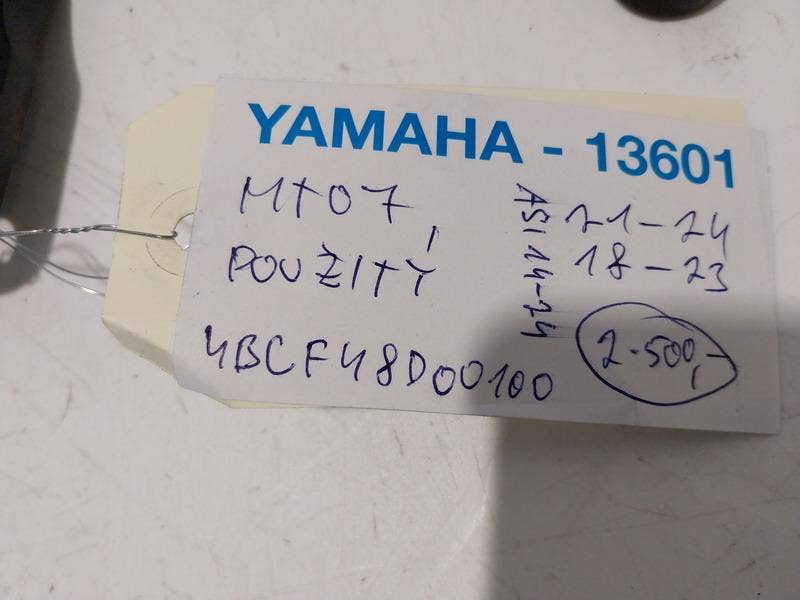 YAMAHA - 13601
MT07,
POUŽITÝ
4BCF48D00100
ASI 14-24
21-24
18-23
2.500,-